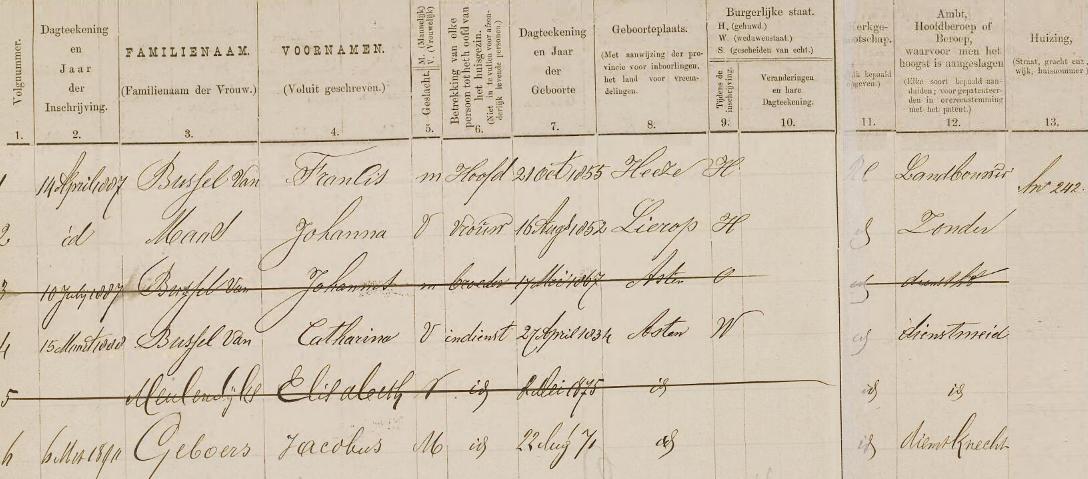 Volgnummer. Dagteekening en Jaar der Inschrijving. FAMILIENAAM. (Familienaam der Vrouw.) VOORNAMEN. (Voluit geschreven.) Geslacht. M. (Mannelijk) V. (Vrouwelijk) Betrekking van elke persoon tot het hoofd van het huisgezin. (Niet in te vullen voor afzonderlijk levende personen.) Dagteekening en Jaar der Geboorte Geboorteplaats. (Met aanwijzing der provincie voor inboorlingen, het land voor vreemdelingen. Burgerlijke staat. H. (gehuwd.) W. (weduwenstaat.) S. (gescheiden van echt.) Tijdens de inschrijving. Veranderingen en hare Dagteekening. Ambt, Hoofdberoep of Beroep, waarvoor men het hoogst is aangeslagen (Elke soort bepaald aanduiden; voor gepatenteerden in overeenstemming met het patent.) Huizing, (Straat, gracht enz. wijk, huisnummer
1. 2. 3. 4. 5. 6. 7. 8. 9. 10. 11. 12. 13.
1 14 April 1887 Bussel Van Francis m Hoofd 21 oct 1855 Heeze H Landbouwer 242
2 id Maas Johanna V vrouw 16 Aug 1852 Lierop H id Zonder
3 10 July 1887 Bussel Van Johannes m broeder 17 Mei 1867 Asten O id
4 15 Maart Bussel Van Catharina V indienst 27 April 1834 Asten W id dienstmeid
5 Meulendijks Elisabeth V id Mei 1875 id id id
6 6 Geboers Jacobus M id 22 71 id id dienstknecht